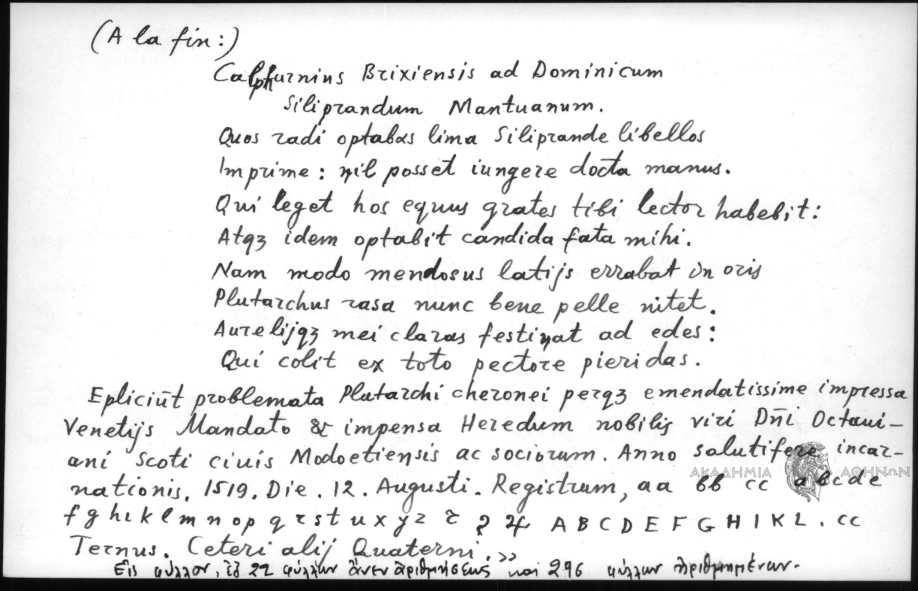 (A la fin:)
Calphurnius Brixiensis ad Dominicum
Siliprandum Mantuanum.
Quos radi optabas lima Siliprande libellos
Imprime: nil posset iungere docta manus.
Qui leget hos equus grates tibi lector habebit:
Atqꝫ idem optabit candida fata mihi.
Nam modo mendosus latijs errabat in oris
Plutarchus rasa nunc bene pelle nitet.
Aurelijqꝫ mei claras festinat ad edes:
Qui colit ex toto pectore pieridas.
Epliciūt problemata Plutarchi cheronei perqꝫ emendatissime impressa
Venetijs Mandato & impensa Heredum nobilis viri Dñi Octaui-
ani Scoti ciuis Modoetiensis ac sociorum. Anno salutifere incar-
nationis. 1519. Die. 12. Augusti. Registrum, aa bb cc abcde
f g h i k l m n o p q r s t u x y z A B C D E F G H I K L. cc
Ternus. Ceteri alij Quaterni.»
Εἰς φύλλον, ἐξ 22 φύλλων ἄνευ ἀριθμήσεως καὶ 296 φύλλων ἠριθμημένων.
ΑΚΑΔΗΜΙΑ ΑΘΗΝΩΝ